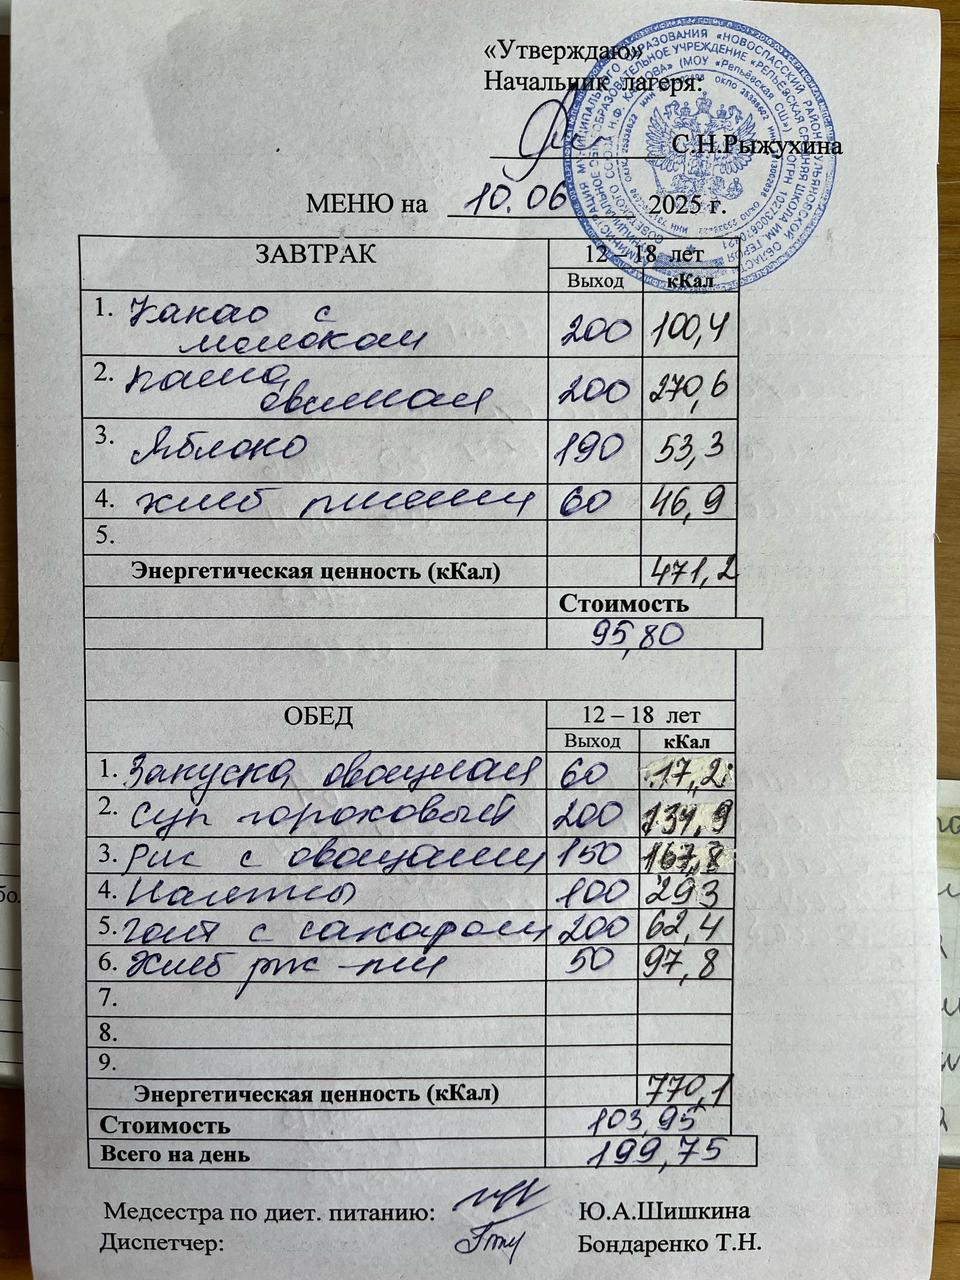 «Утверждаю»
Начальник лагеря:
С.Н.Рыжухина
МЕНЮ на 10.06 2025 г.
ЗАВТРАК 12 – 18 лет
Выход кКал
1. Какао с молоком 200 100,4
2. Каша овсяная 200 270,6
3. Яблоко 190 53,3
4. хлеб пшенич 60 46,9
5.
Энергетическая ценность (кКал) 471,2
Стоимость
95,80
ОБЕД 12 – 18 лет
Выход кКал
1. Закуска овощная 60 17,2
2. Суп гороховый 200 131,9
3. Рис с овощами 150 167,8
4. Котлеты 100 293
5. Чай с сахаром 200 62,4
6. Хлеб рж-пш 50 97,8
7.
8.
9.
Энергетическая ценность (кКал) 770,1
Стоимость 103,95
Всего на день 199,75
Медсестра по диет. питанию: Ю.А.Шишкина
Диспетчер: Бондаренко Т.Н.